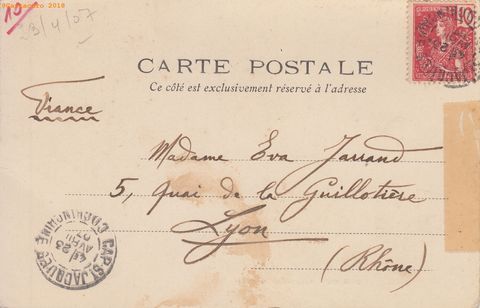 ©Gassacuro 2010
15
23/4/07
CARTE POSTALE
Ce côté est exclusivement réservé à l'adresse
France
Madame Eva Jarrand
5, Quai de la Guillotière
Lyon
(Rhône)
CAP ST JACQUES
COCHINCHINE
24
AVRIL
07